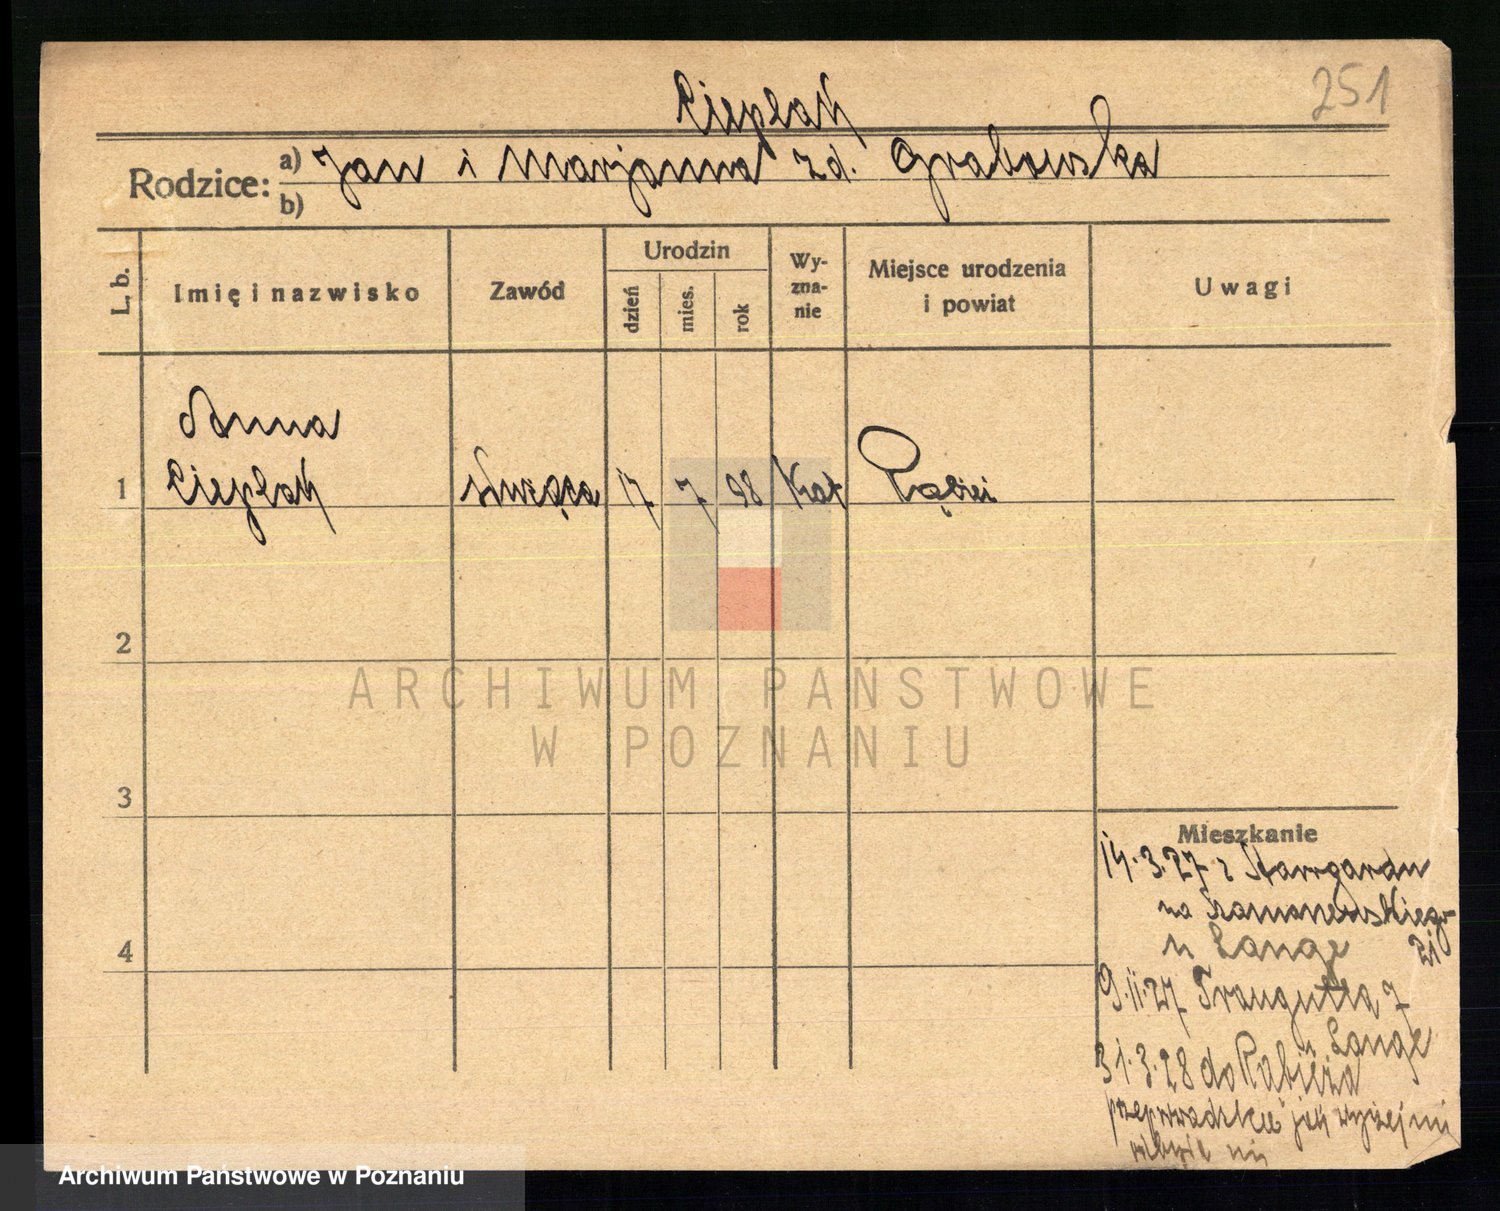 251
Cieplak
Rodzice:
a) Jan i Marjanna zd. Grabowska
b)
L. b.
Imię i nazwisko
Zawód
Urodzin
dzień
mies.
rok
Wy-
zna-
nie
Miejsce urodzenia
i powiat
Uwagi
Anna
1 Cieplak służąca 17 7 98 Kat
2
3
4
Mieszkanie
14.3.27 z Starogardu
na
u Lange 21
9.11.27 Traugutta 7
u Lange
31.3.28 do
jak wyżej
ARCHIWUM PAŃSTWOWE
W POZNANIU
Archiwum Państwowe w Poznaniu